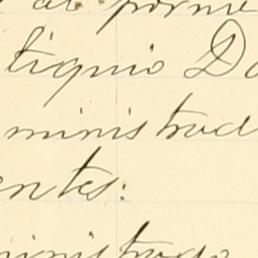 al porme
tiquio Do
ministrad
entes:
ministrado